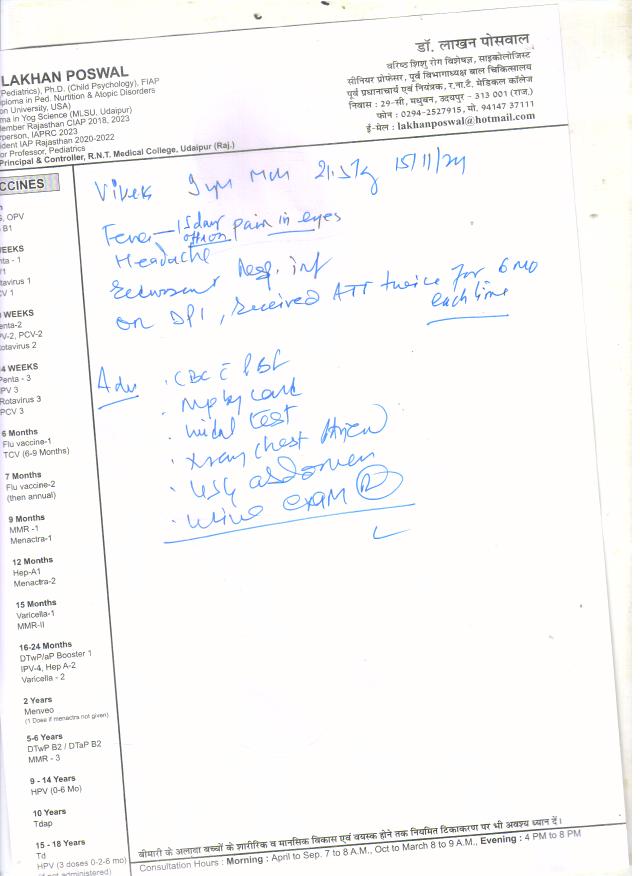 डॉ. लाखन पोसवाल
वरिष्ठ शिशु रोग विशेषज्ञ, साइकोलोजिस्ट
सीनियर प्रोफेसर, पूर्व विभागाध्यक्ष बाल चिकित्सालय
पूर्व प्रधानाचार्य एवं नियंत्रक, र.ना.टै. मेडिकल कॉलेज
निवास : 29-सी, मधुबन, उदयपुर - 313 001 (राज.)
फोन : 0294-2527915, मो. 94147 37111
ई-मेल : lakhanposwal@hotmail.com
LAKHAN POSWAL
Pediatrics), Ph.D. (Child Psychology), FIAP
ploma in Ped. Nurtition & Atopic Disorders
on University, USA)
ma in Yog Science (MLSU, Udaipur)
ember Rajasthan CIAP 2018, 2023
person, IAPRC 2023
dent IAP Rajasthan 2020-2022
or Professor, Pediatrics
Principal & Controller, R.N.T. Medical College, Udaipur (Raj.)
CCINES
, OPV
B1
EEKS
nta - 1
1
tavirus 1
V 1
WEEKS
enta-2
PV-2, PCV-2
otavirus 2
4 WEEKS
Penta - 3
PV 3
Rotavirus 3
PCV 3
6 Months
Flu vaccine-1
TCV (6-9 Months)
7 Months
Flu vaccine-2
(then annual)
9 Months
MMR -1
Menactra-1
12 Months
Hep-A1
Menactra-2
15 Months
Varicella-1
MMR-II
16-24 Months
DTwP/aP Booster 1
IPV-4, Hep A-2
Varicella - 2
2 Years
Menveo
(1 Dose if menactra not given)
5-6 Years
DTwP B2 / DTaP B2
MMR - 3
9 - 14 Years
HPV (0-6 Mo)
10 Years
Tdap
15 - 18 Years
Td
HPV (3 doses 0-2-6 mo)
administered)
Vivek 15/11/24
Fever - 15 day pain in eyes
off on
Headache
Recurrent Resp. inf
on DPI, received ATT twice for 6 mo
each time
Adv
. CBC c PBF
. Mp by card
. widal test
. xray chest
. USG abdomen
. urine exam R
बीमारी के अलावा बच्चों के शारीरिक व मानसिक विकास एवं वयस्क होने तक नियमित टिकाकरण पर भी अवश्य ध्यान दें।
Consultation Hours : Morning : April to Sep. 7 to 8 A.M., Oct to March 8 to 9 A.M., Evening : 4 PM to 8 PM